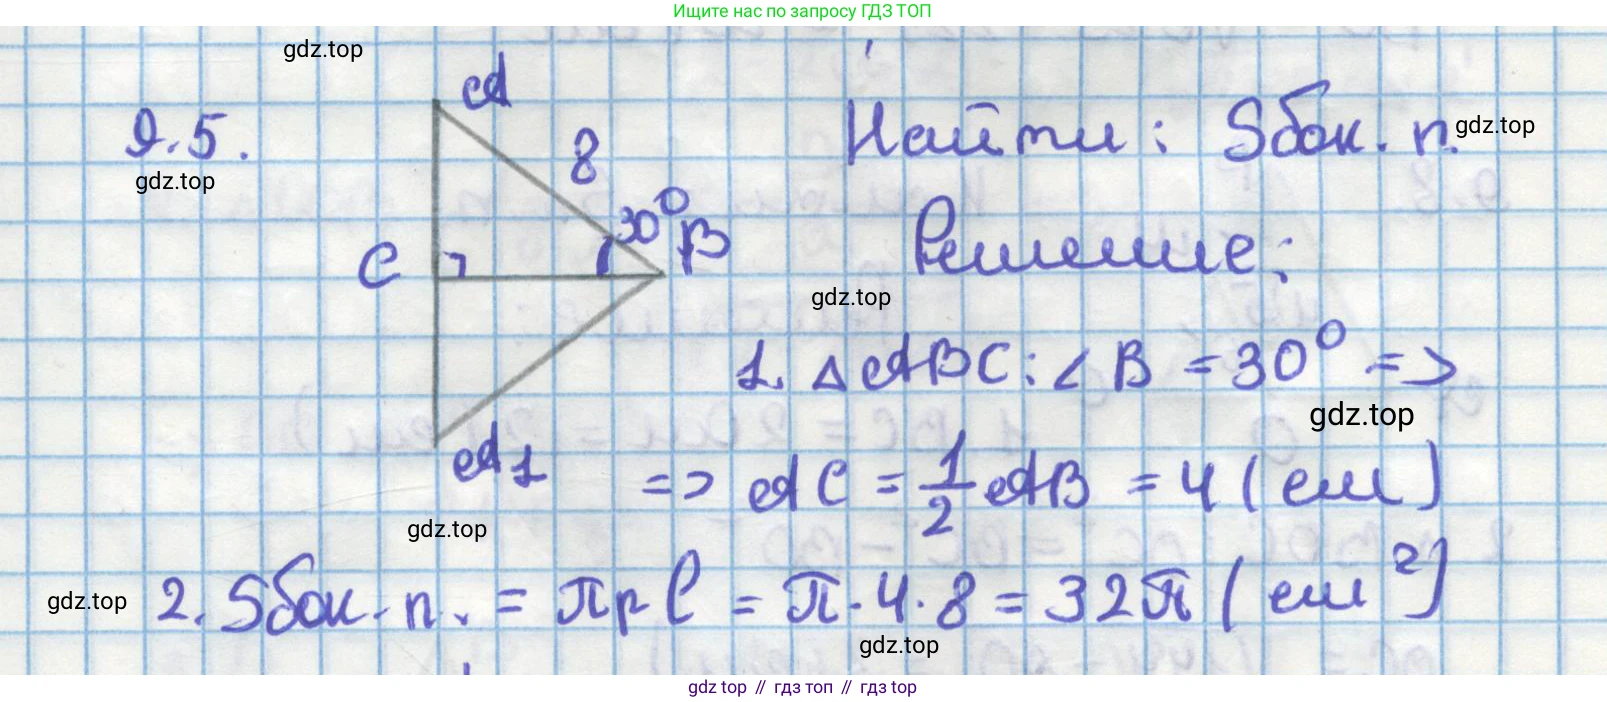 Ищите нас по запросу ГДЗ ТОП
gdz.top
A
9.5.
8
Найти: Sбок. п.
gdz.top
gdz.top
30°
B
C
Решение:
gdz.top
1. △ABC: ∠B = 30° =>
gdz.top
A1
=> AC = 1/2 AB = 4 (см)
gdz.top
gdz.top
2. Sбок. п. = πrl = π · 4 · 8 = 32π (см²)
gdz.top
gdz top // гдз топ // гдз top